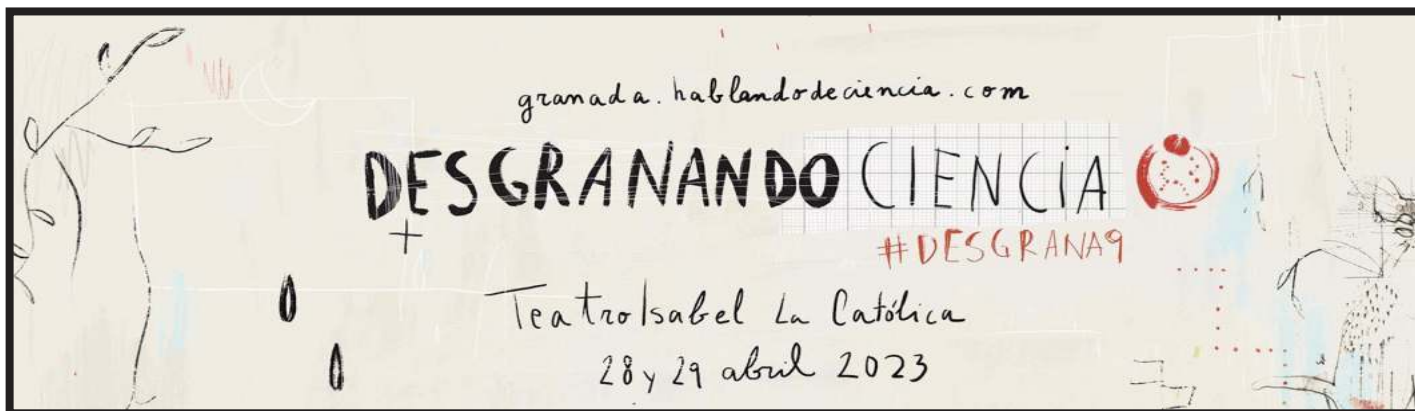 granada.hablandodeciencia.com
DESGRANANDO CIENCIA
#DESGRANA9
Teatro Isabel La Católica
28 y 29 abril 2023